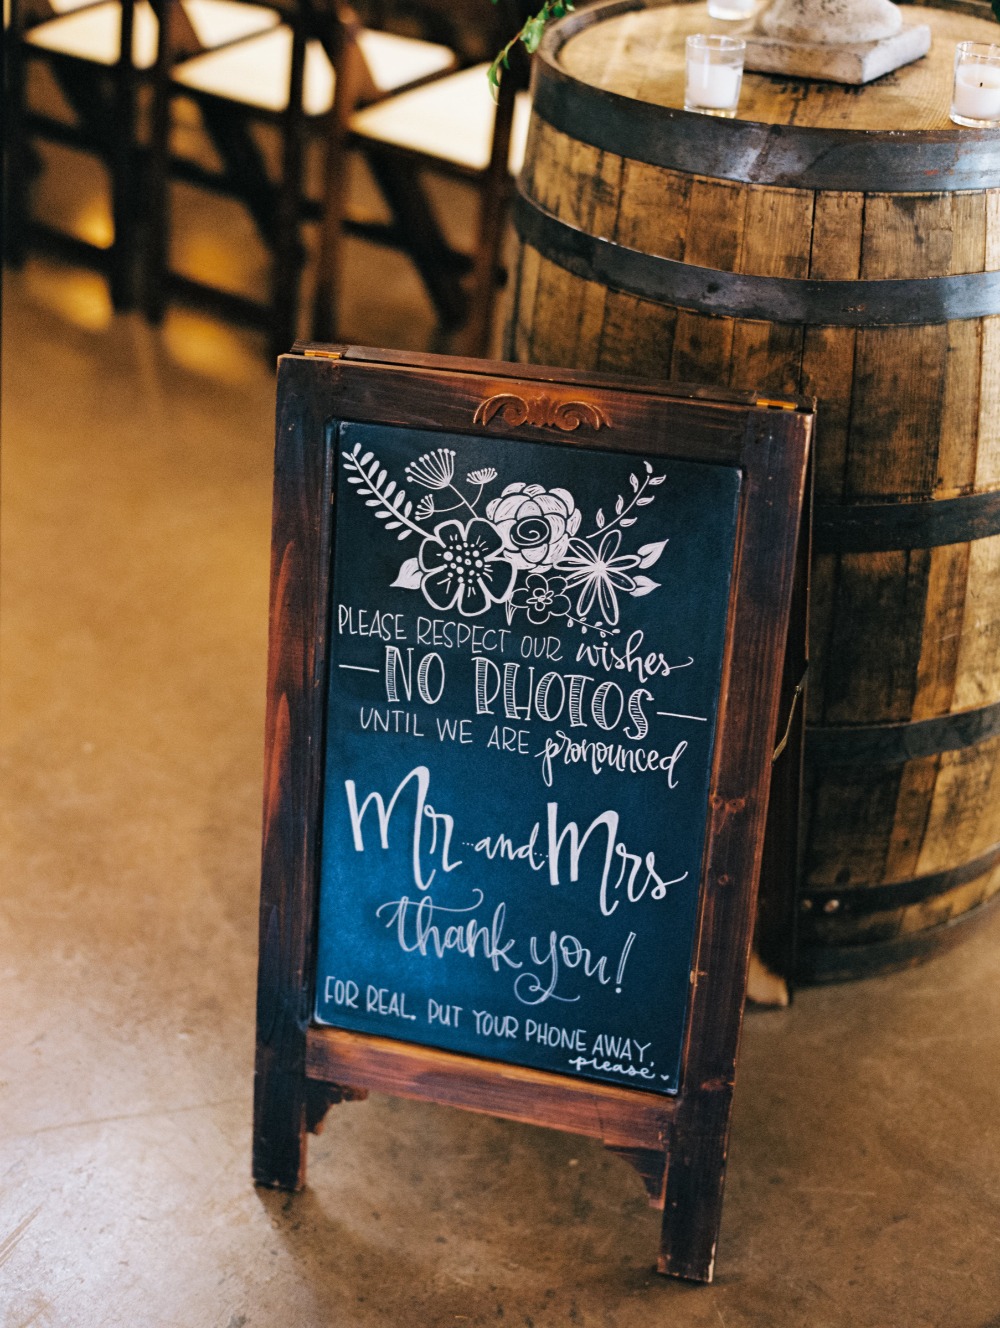 PLEASE RESPECT OUR wishes
NO PHOTOS
UNTIL WE ARE pronounced
Mr and Mrs
thank you!
FOR REAL. PUT YOUR PHONE AWAY,
please.